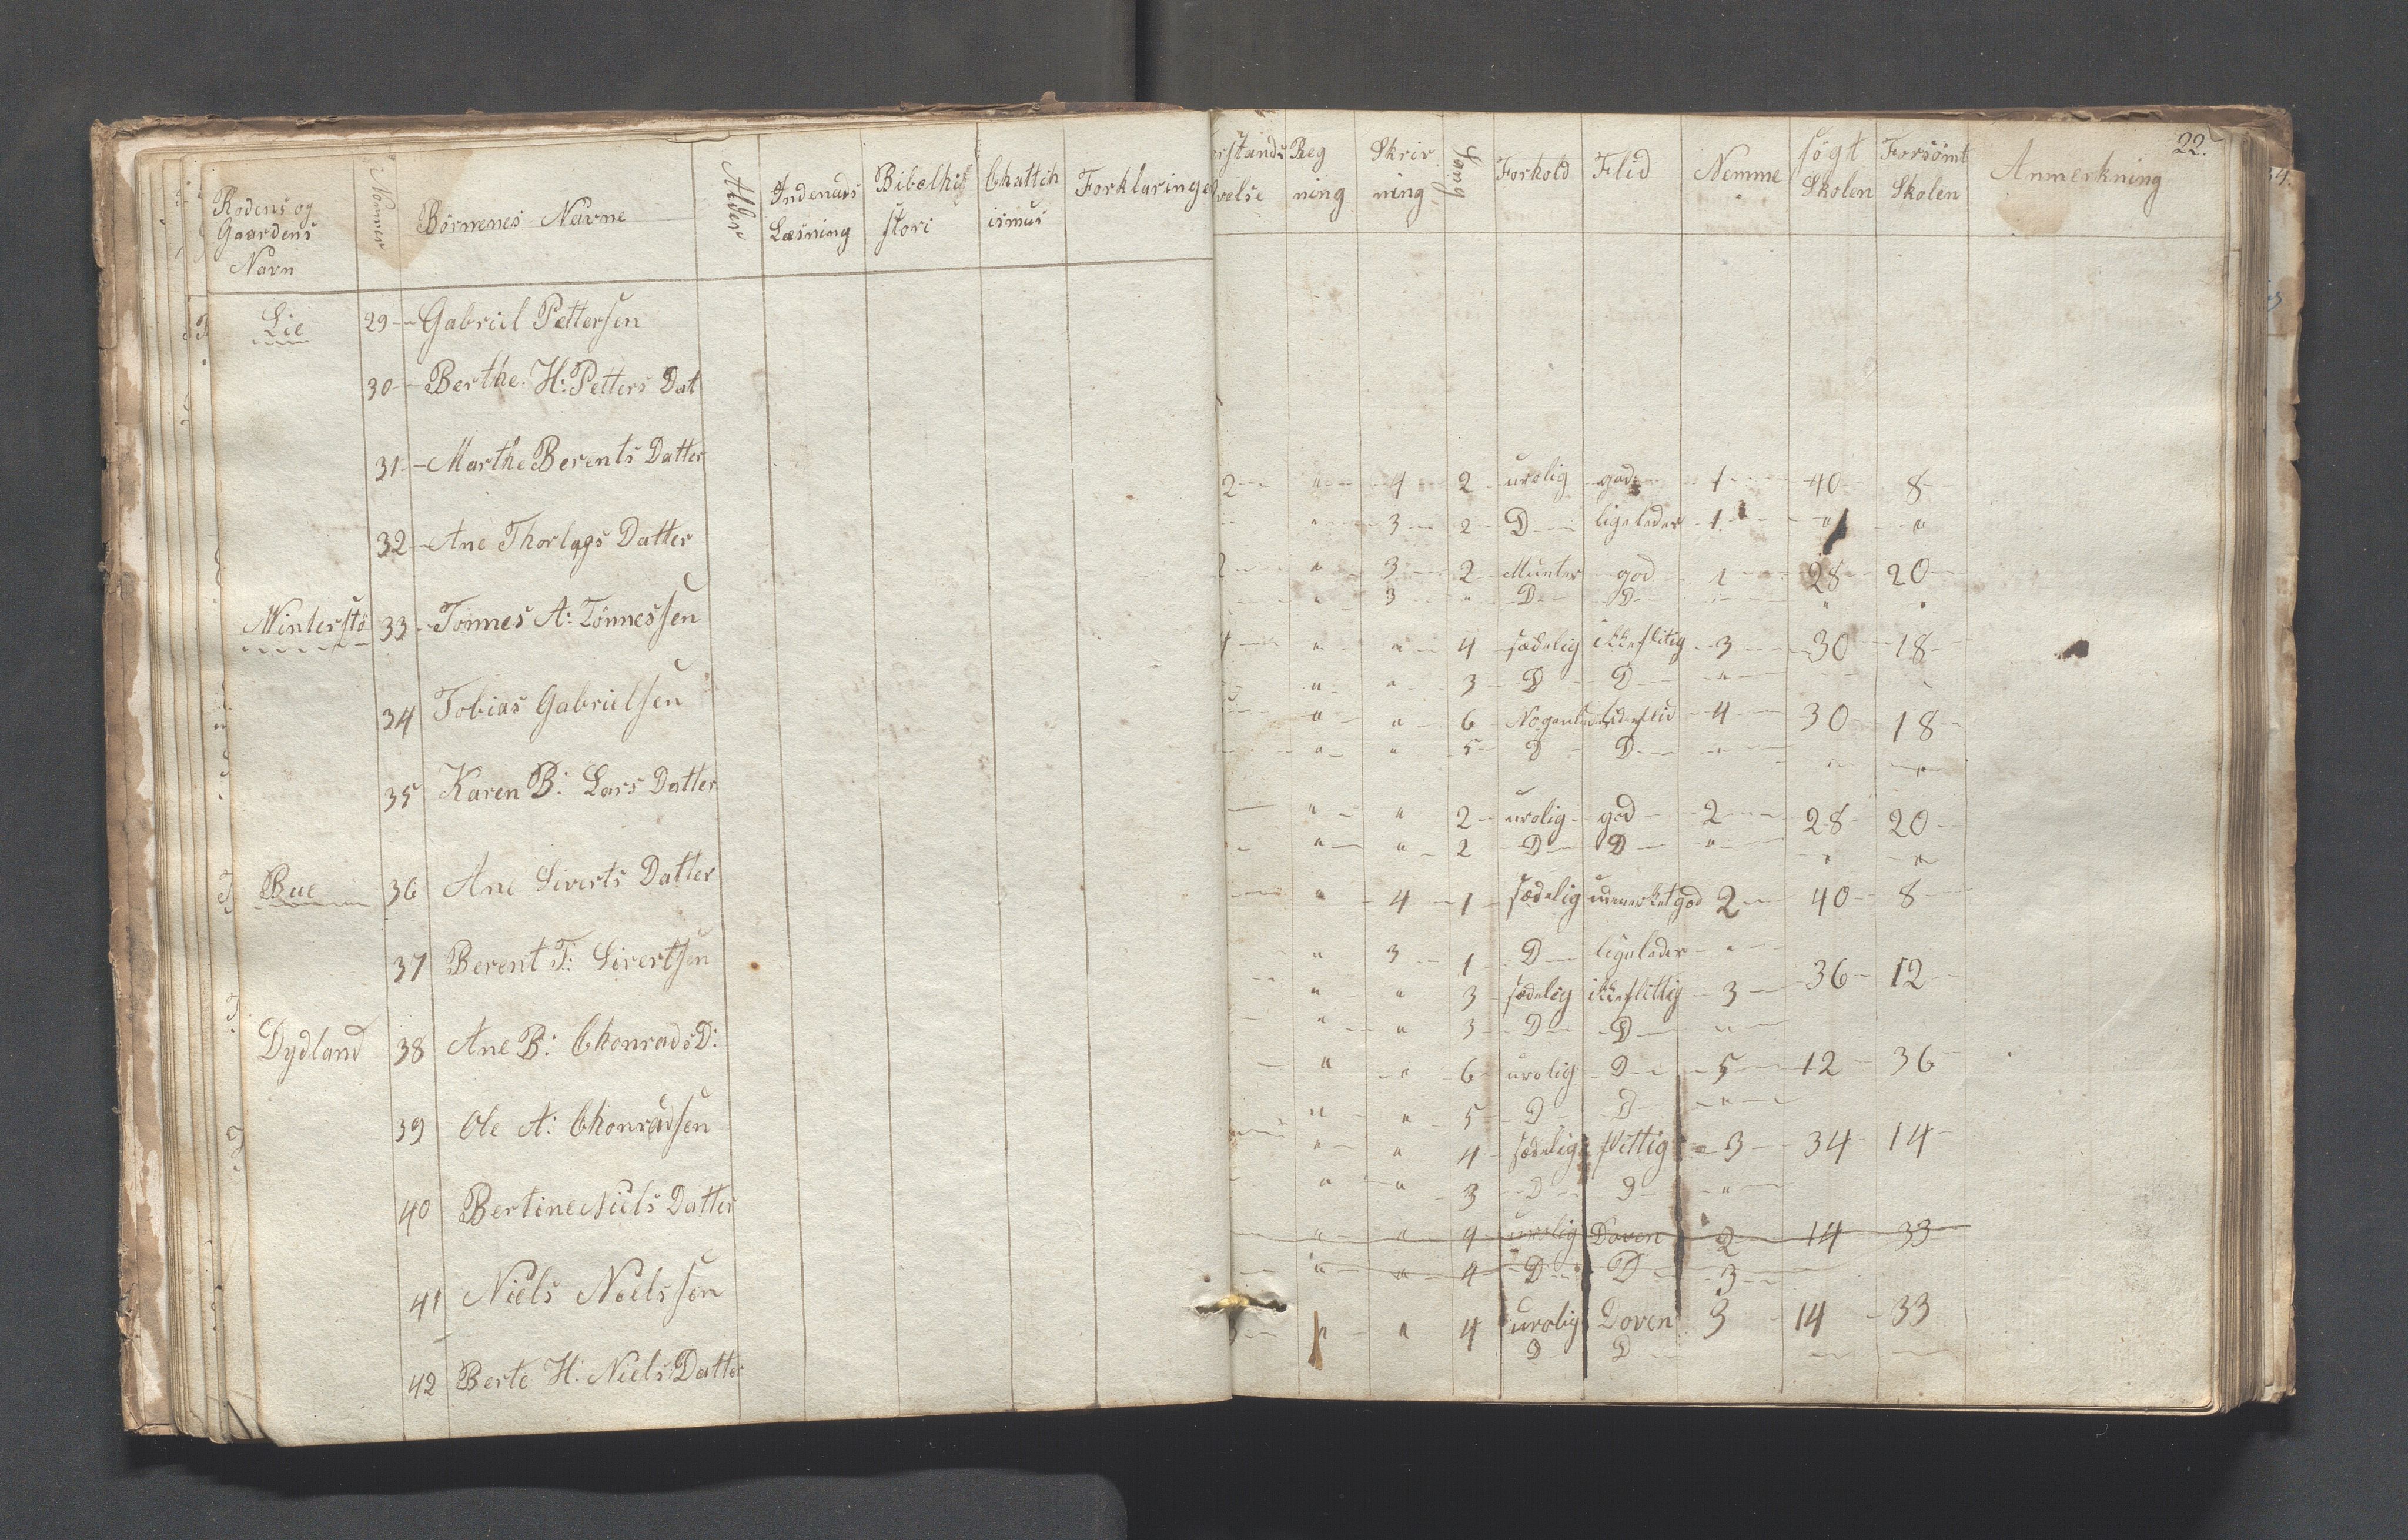 Rodens og Gaardens Navn Nomer Börnenes Navne Alder Indenads Læsning Bibelhi stori Chattch ismus Forklaringe
Lie 29 - Gabriel Pettersen
30 - Berthe H: Petters Dat
31 - Marthe Berents Datter
32 - Ane Thorlags Datter
Winterstö 33 - Tönnes A: Tönnessen
34 Tobias Gabrielsen
35 Karen B: Lars Datter
Bue 36 Ane Siverts Datter
37 Berent T: Sivertsen
Dydland 38 Ane B: Chonrads D:
39 Ole A: Chonradsen
40 Bertine Niels Datter
41 Niels Nielssen
42 Berte H: Niels Datter
22.
rstands velse Reg ning Skriv ning Sang Forhold Flid Nemme søgt Skolen Forsömt Skolen Anmerkning
2 " 4 2 urolig god 1 40 8
" 3 2 D ligeleder 1 " "
2 " 3 2 Munter god 1 28 20
" 3 " D D " "
4 " " 4 sædelig ikkeflitig 3 30 18
" " 3 D D "
" " 6 4 30 18
" " 5 D D "
" " 2 urolig god 2 28 20
" " 2 D D " " "
" 4 1 sædelig udmerket god 2 40 8
" 3 1 D ligeleder "
" " 3 sædelig ikkeflittig 3 36 12
" " 3 D D "
" " 6 urolig D 5 12 36
" " 5 D D "
" " 4 sædelig flittig 3 34 14
" " 3 D D "
" " 4 urolig Doven 2 14 33
" " 4 D D 3
" " 4 urolig Doven 3 14 33
D D